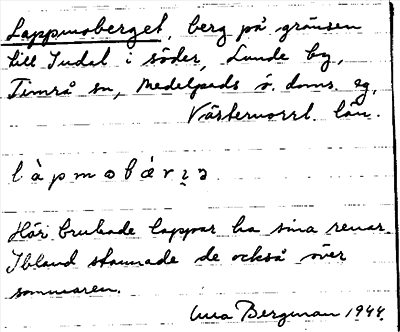 Lappmoberget, berg på gränsen
till Indal i söder, Lunde by,
Timrå sn, Medelpads ö. doms. sg,
Västernorrl. län.
l à p m ɷ b ǽ r ı̨ ə
Här brukade lappar ha sina renar.
Ibland stannade de också över
sommaren.
Bergman 1944.